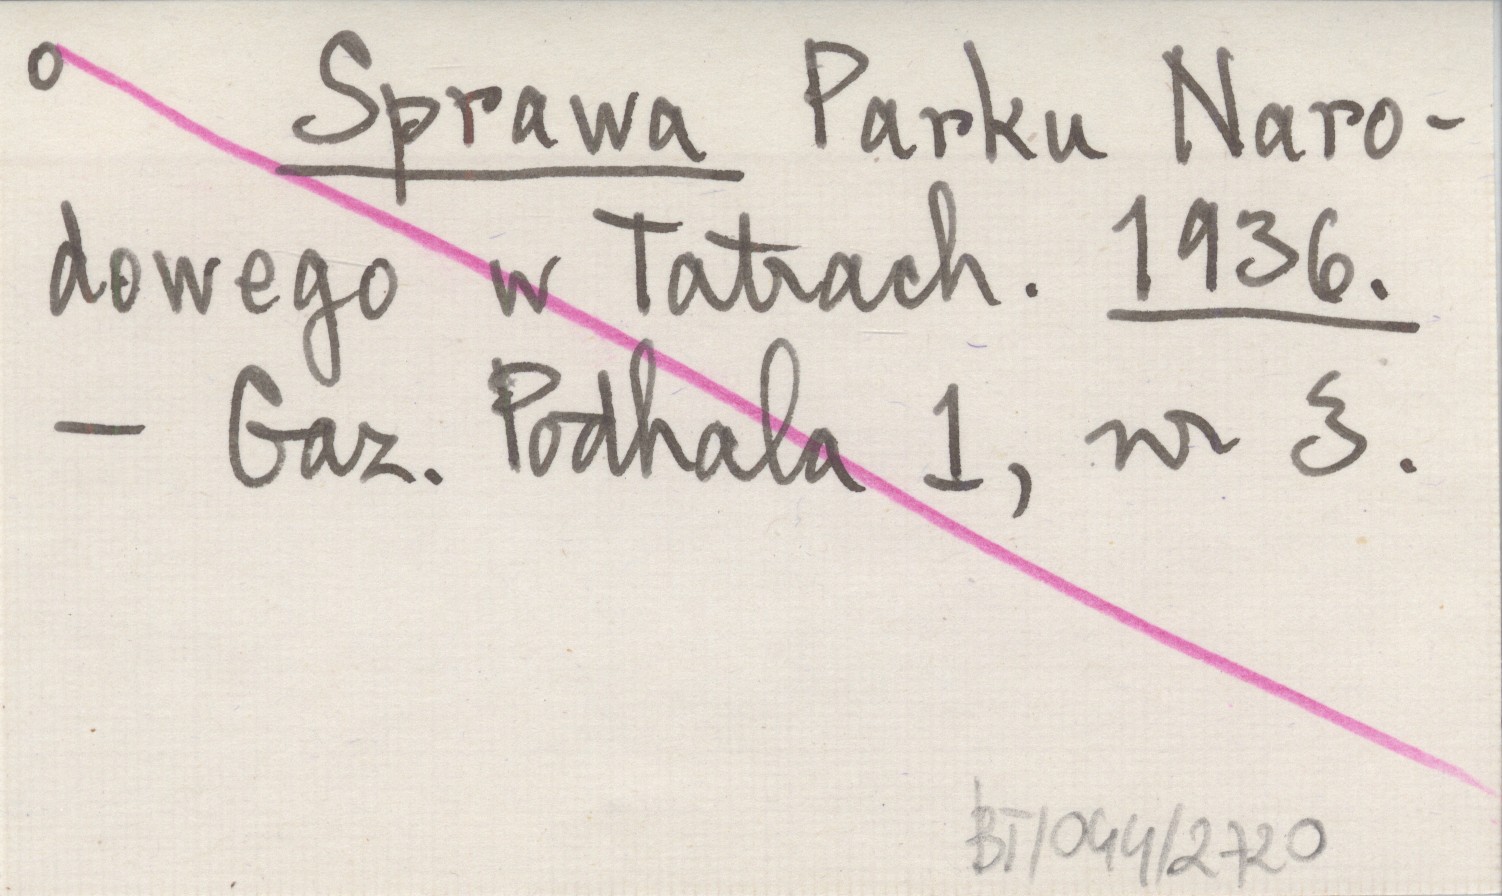 o Sprawa Parku Naro-
dowego w Tatrach. 1936.
— Gaz. Podhala 1, nr 3.
BT/044/2720